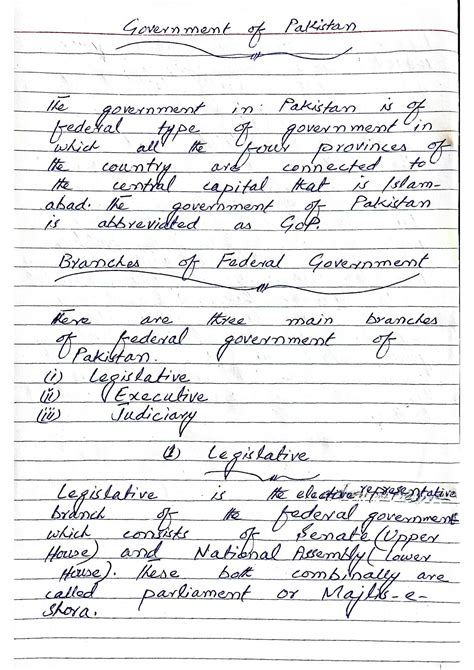 Government of Pakistan
The government in Pakistan is of
federal type of government in
which all the four provinces of
the country are connected to
the central capital that is Islam-
abad. The government of Pakistan
is abbreviated as GoP.
Branches of Federal Government
There are three main branches
of federal government of
Pakistan.
(i) Legislative
(ii) Executive
(iii) Judiciary
(1) Legislative
Legislative is the elective representative
branch of the federal government
which consists of Senate (Upper
House) and National Assembly (lower
House). These both combinally are
called parliament or Majlis-e-
Shora.